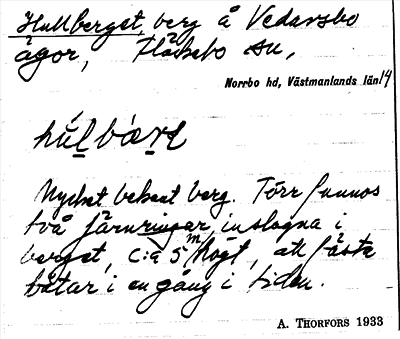 Hullberget, berg å Vedarsbo
ägor, Fläckebo sn,
Norrbo hd, Västmanlands län 14
húlbàrе
Mycket bekant berg. Förr funnos
två järnringar, inslagna i
berget, c:a 5 m högt, att fästa
båtar i en gång i tiden.
A. THORFORS 1933